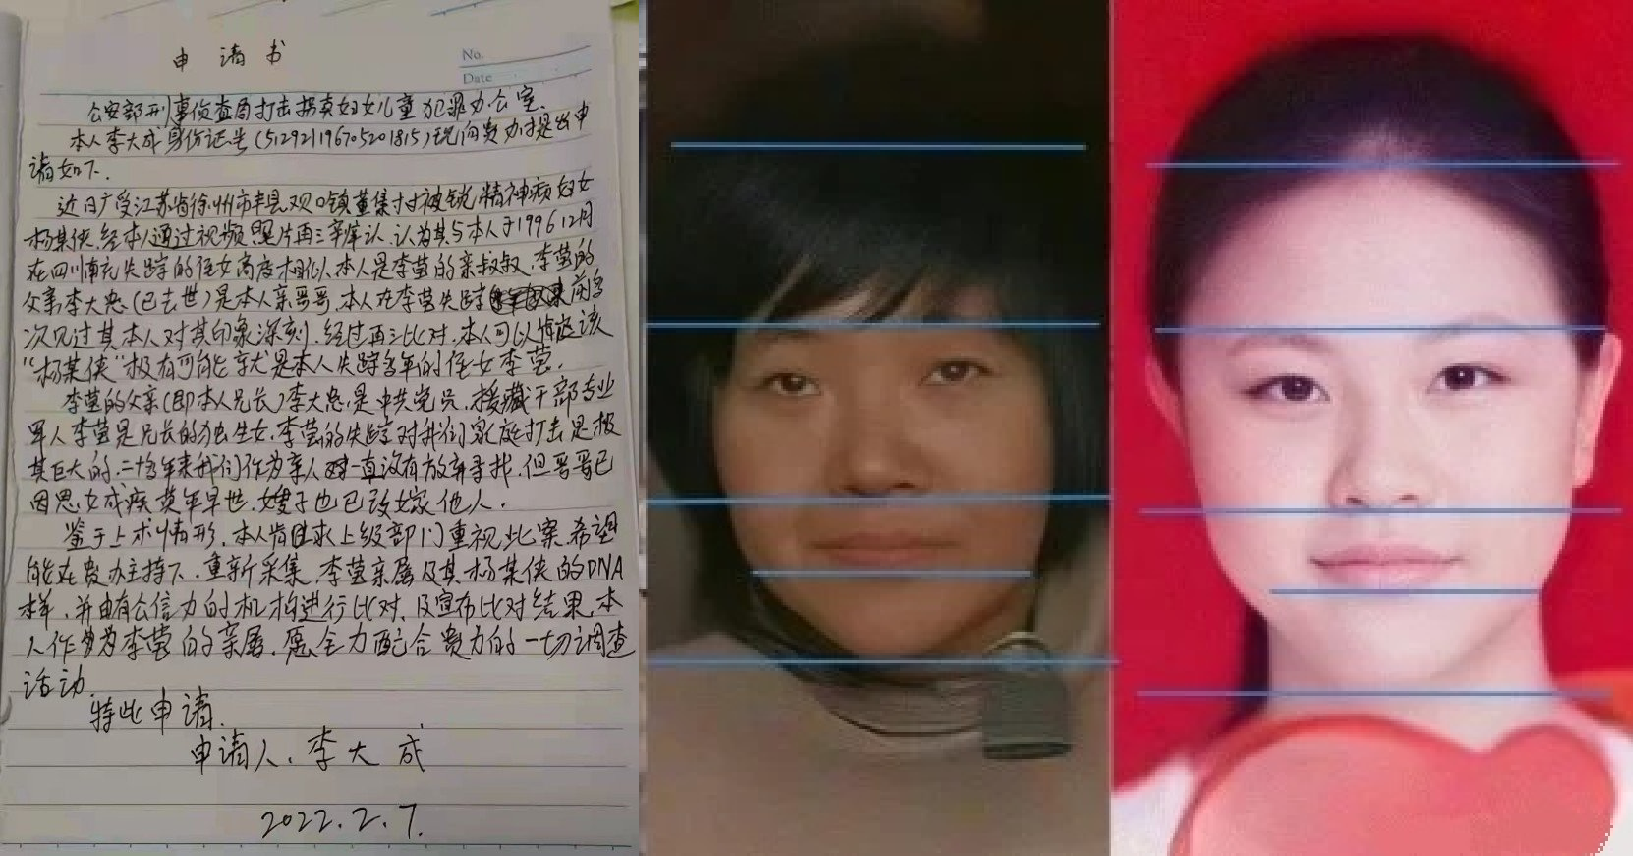 申请书
No.
Date
公安部刑事侦查局打击拐卖妇女儿童犯罪办公室.
本人李大成身份证号(512921196705201815)现向贵办提出申
请如下.
近日广受江苏省徐州市丰县欢口镇董集村被锁精神病妇女
杨某侠.经本人通过视频照片再三辨认.认为其与本人于1996 12月
在四川南充失踪的侄女高度相似.本人是李莹的亲叔叔.李莹的
父亲李大忠(已去世)是本人亲哥哥.本人在李莹失踪前多
次见过其本人对其印象深刻.经过再三比对.本人可以该
"杨某侠"极有可能就是本人失踪多年的侄女李莹.
李莹的父亲(即本人兄长)李大忠.是中共党员.援藏干部专业
军人李莹是兄长的独生女.李莹的失踪对我们家庭打击是极
其巨大的.二十多年来我们作为亲人一直没有放弃寻找.但哥哥已
因思女成疾英年早世.嫂子也已改嫁他人.
鉴于上术情形.本人肯求上级部门重视此案.希望
能在贵办主持下.重新采集.李莹亲属及其杨某侠的DNA
样.并由有公信力的机构进行比对.及宣布比对结果.本
人作为李莹的亲属.愿全力配合贵方的一切调查
活动.
特此申请.
申请人.李大成
2022.2.7.